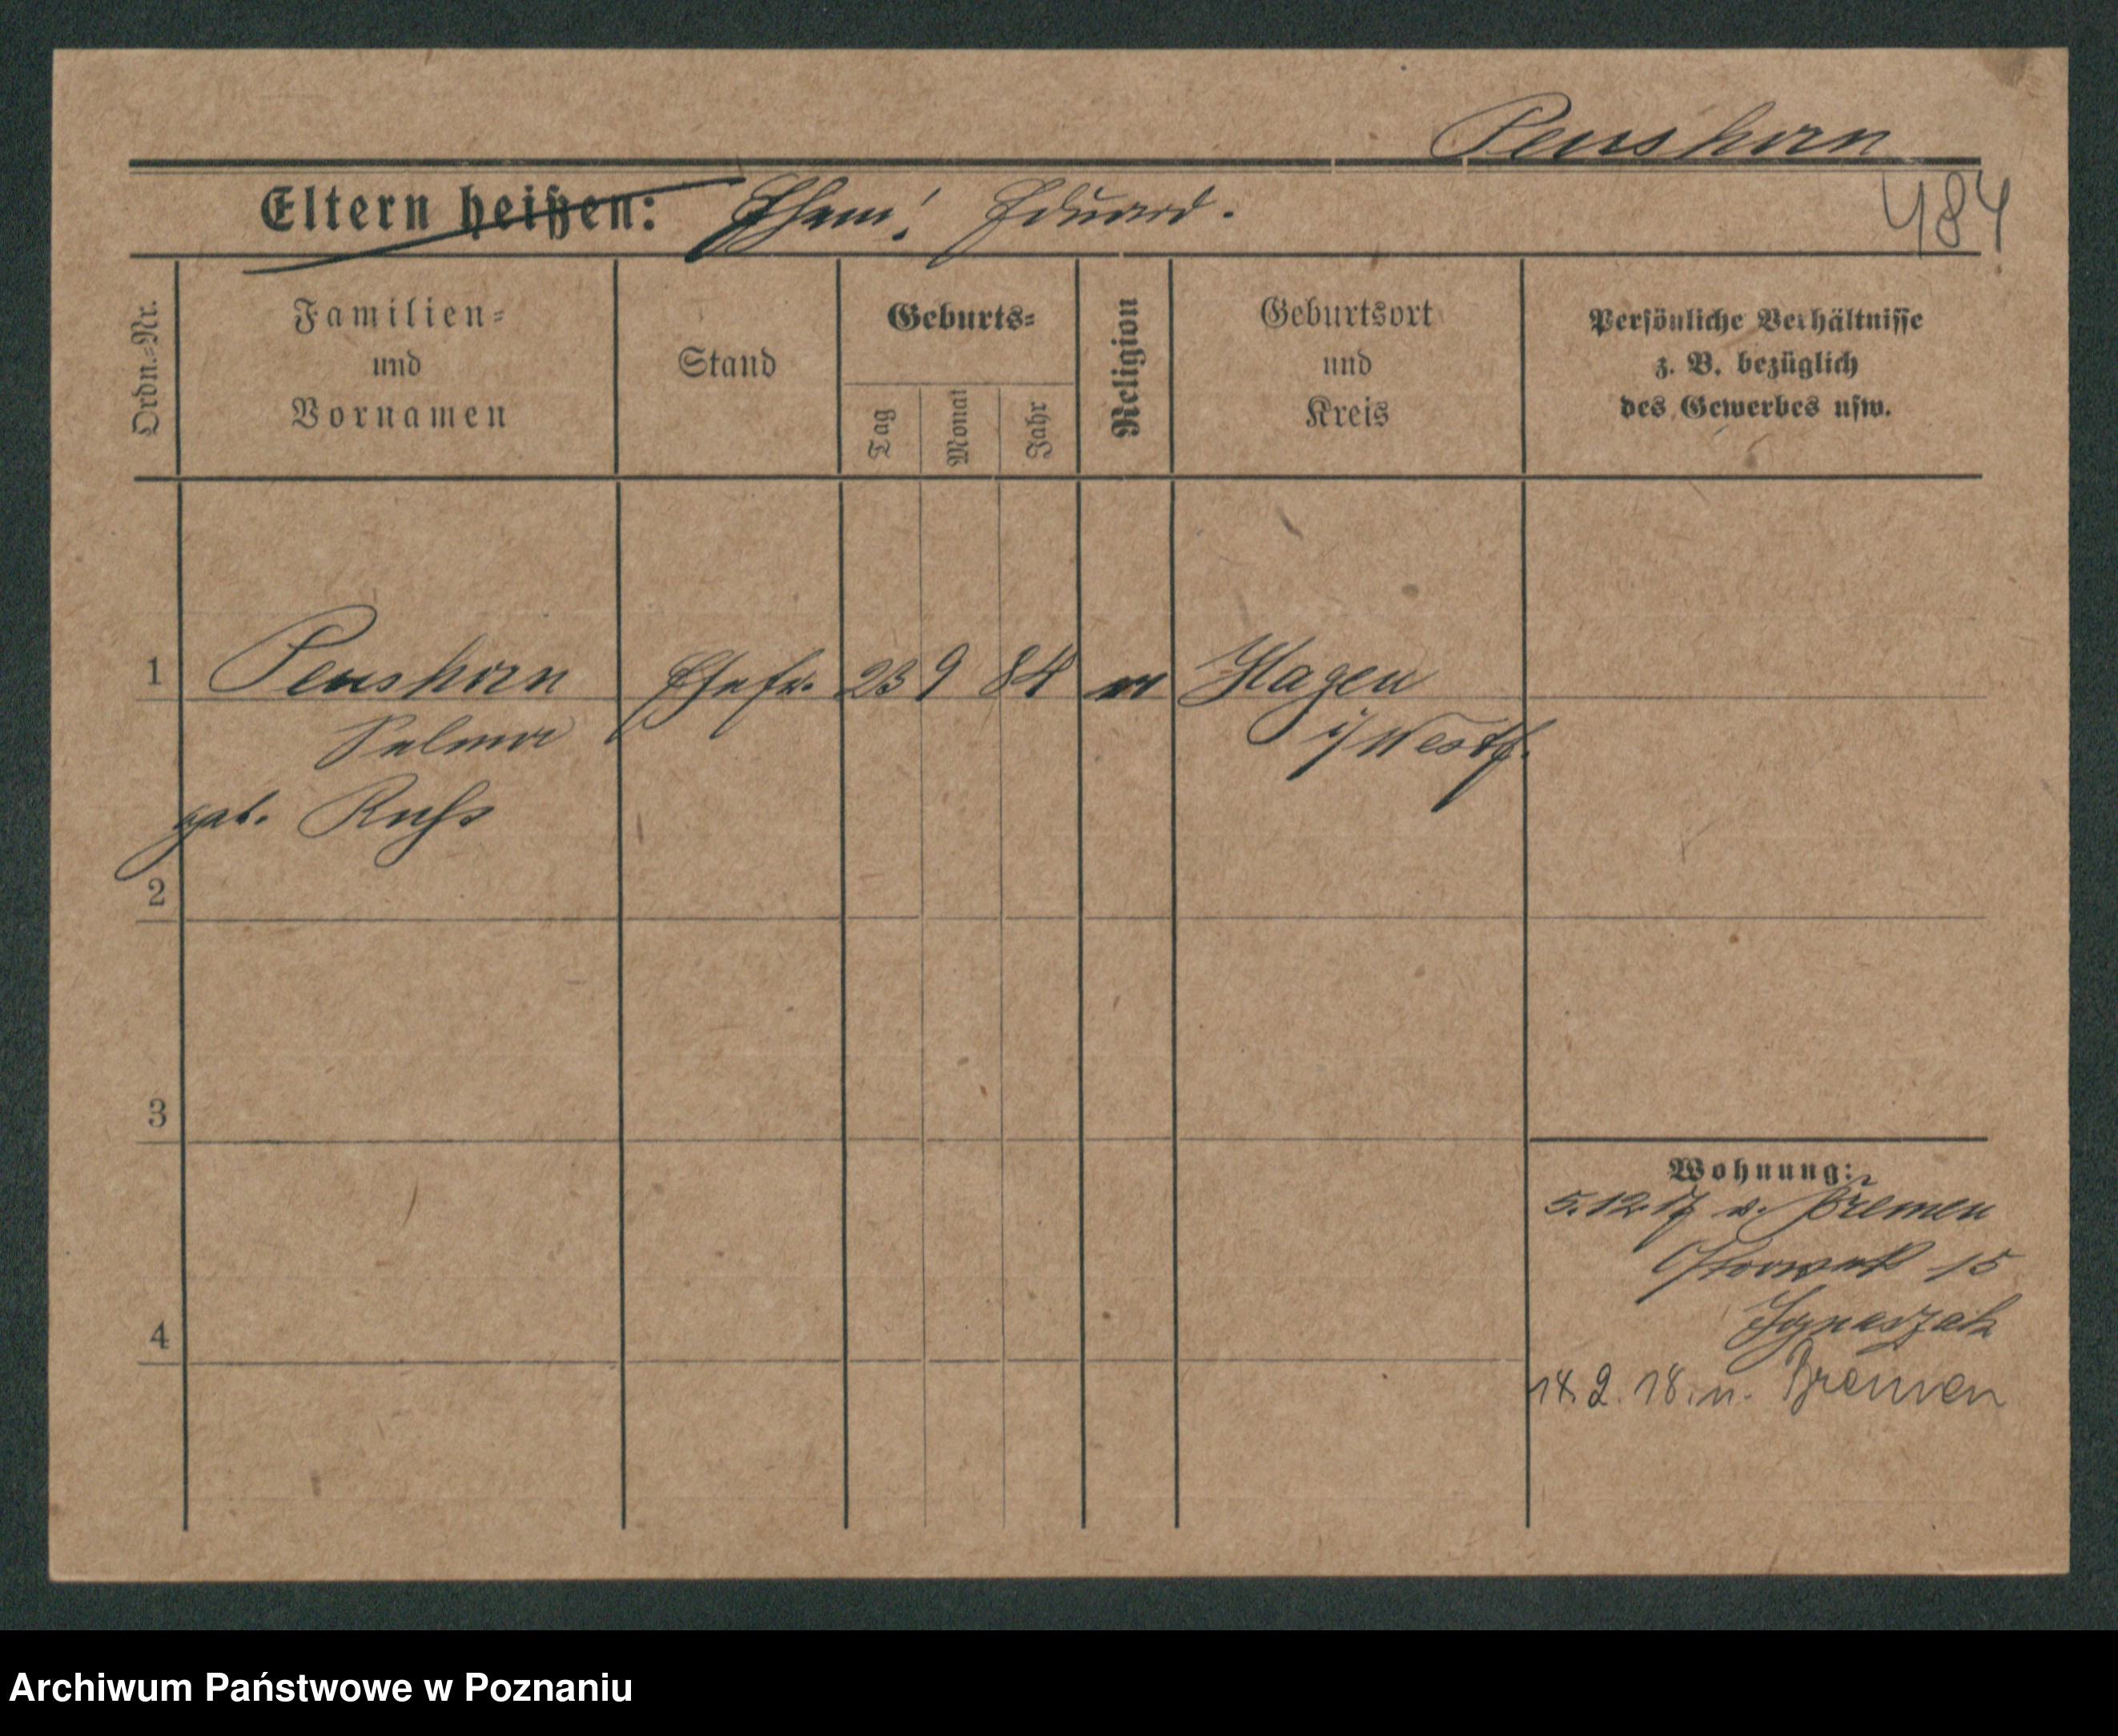 Penshorn
Eltern heißen: Ehem: Eduard.
484
Ordn.-Nr.
Familien-
und
Vornamen
Stand
Geburts-
Tag
Monat
Jahr
Religion
Geburtsort
und
Kreis
Persönliche Verhältnisse
z. B. bezüglich
des Gewerbes usw.
1 Penshorn Ehefr. 23 9 84 ev Hagen
Selma i/Westf.
geb.
2
3
4
Wohnung:
5.12.17 v. Bremen
15
Ignaszak
14.2.18. n. Bremen
Archiwum Państwowe w Poznaniu